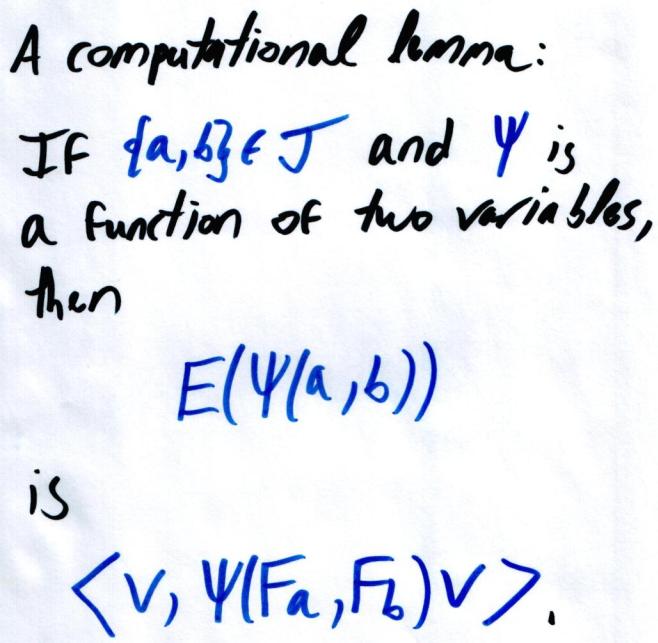 A computational lemma:
If {a,b} ∈ J and Ψ is
a function of two variables,
then
E(Ψ(a,b))
is
<v, Ψ(Fa,Fb)v>.